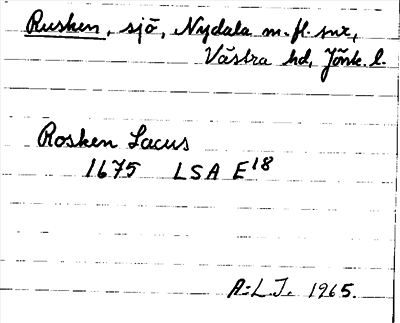 Rusken, sjö, Nydala m. fl. snr,
Västra hd, Jönk. l.
Rosken Lacus
1675 LSA E18
A-L.J. 1965.